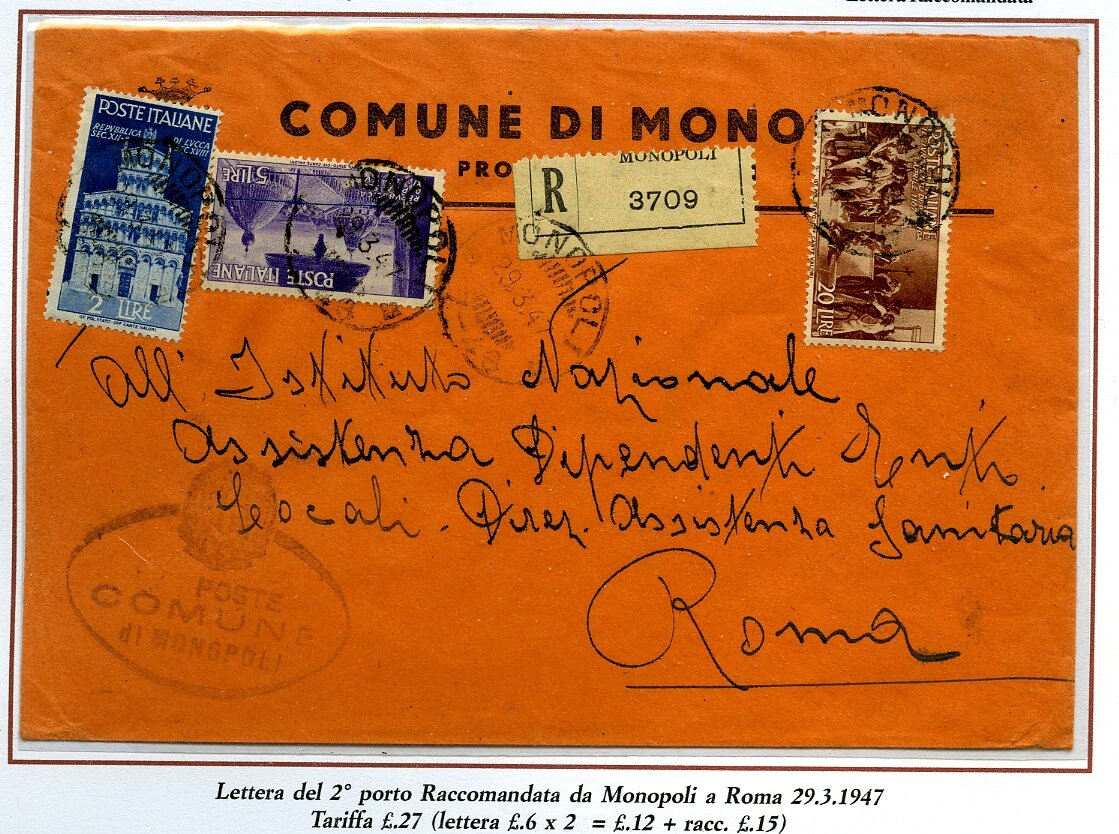 COMUNE DI MONO
PRO
POSTE ITALIANE
REPVBBLICA DI LVCCA
SEC. XII - SEC. XVIII
2 LIRE
IST. POL. STATO - OFF. CARTE VALORI
5 LIRE
POSTE ITALIANE
MONOPOLI
29.3.47
R
MONOPOLI
3709
MONOPOLI
29.3.4
MONOPOLI
POSTE ITALIANE
20 LIRE
All' Istituto Nazionale
Assistenza Dipendenti Enti
Locali - Direz. Assistenza Sanitaria
Roma
POSTE
COMUNE
di MONOPOLI
Lettera del 2° porto Raccomandata da Monopoli a Roma 29.3.1947
Tariffa £.27 (lettera £.6 x 2 = £.12 + racc. £.15)